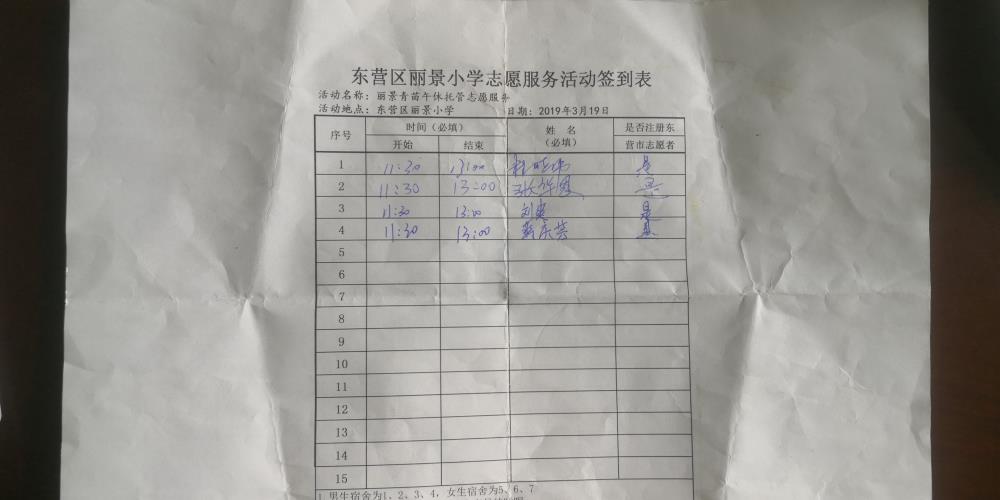 东营区丽景小学志愿服务活动签到表
活动名称：丽景青苗午休托管志愿服务
活动地点：东营区丽景小学 日期：2019年3月19日
序号 时间（必填） 姓 名（必填） 是否注册东营市志愿者
开始 结束
1 11:30 13:00 是
2 11:30 13:00 是
3 11:30 13:00 是
4 11:30 13:00 是
5
6
7
8
9
10
11
12
13
14
15
1.男生宿舍为1、2、3、4，女生宿舍为5、6、7